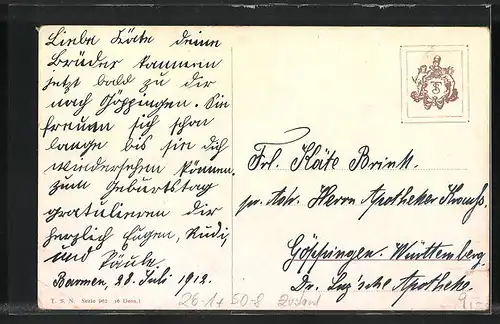 Liebe Käte deine
Brüder kommen
jetzt bald zu dir
nach Göppingen. Sie
freuen sich schon
lange bis sie dich
wiedersehen können.
zum Geburtstag
gratulieren dir
herzlich Eugen, Rudi,
und Paula
Barmen, 28. Juli 1912.
T. S. N. Serie 962 (6 Dess.)
Frl. Käte Brink.
pr. Adr. Herrn Apotheker
Göppingen. Württemberg
Dr. Apotheke.
26-17 50-8
9,-